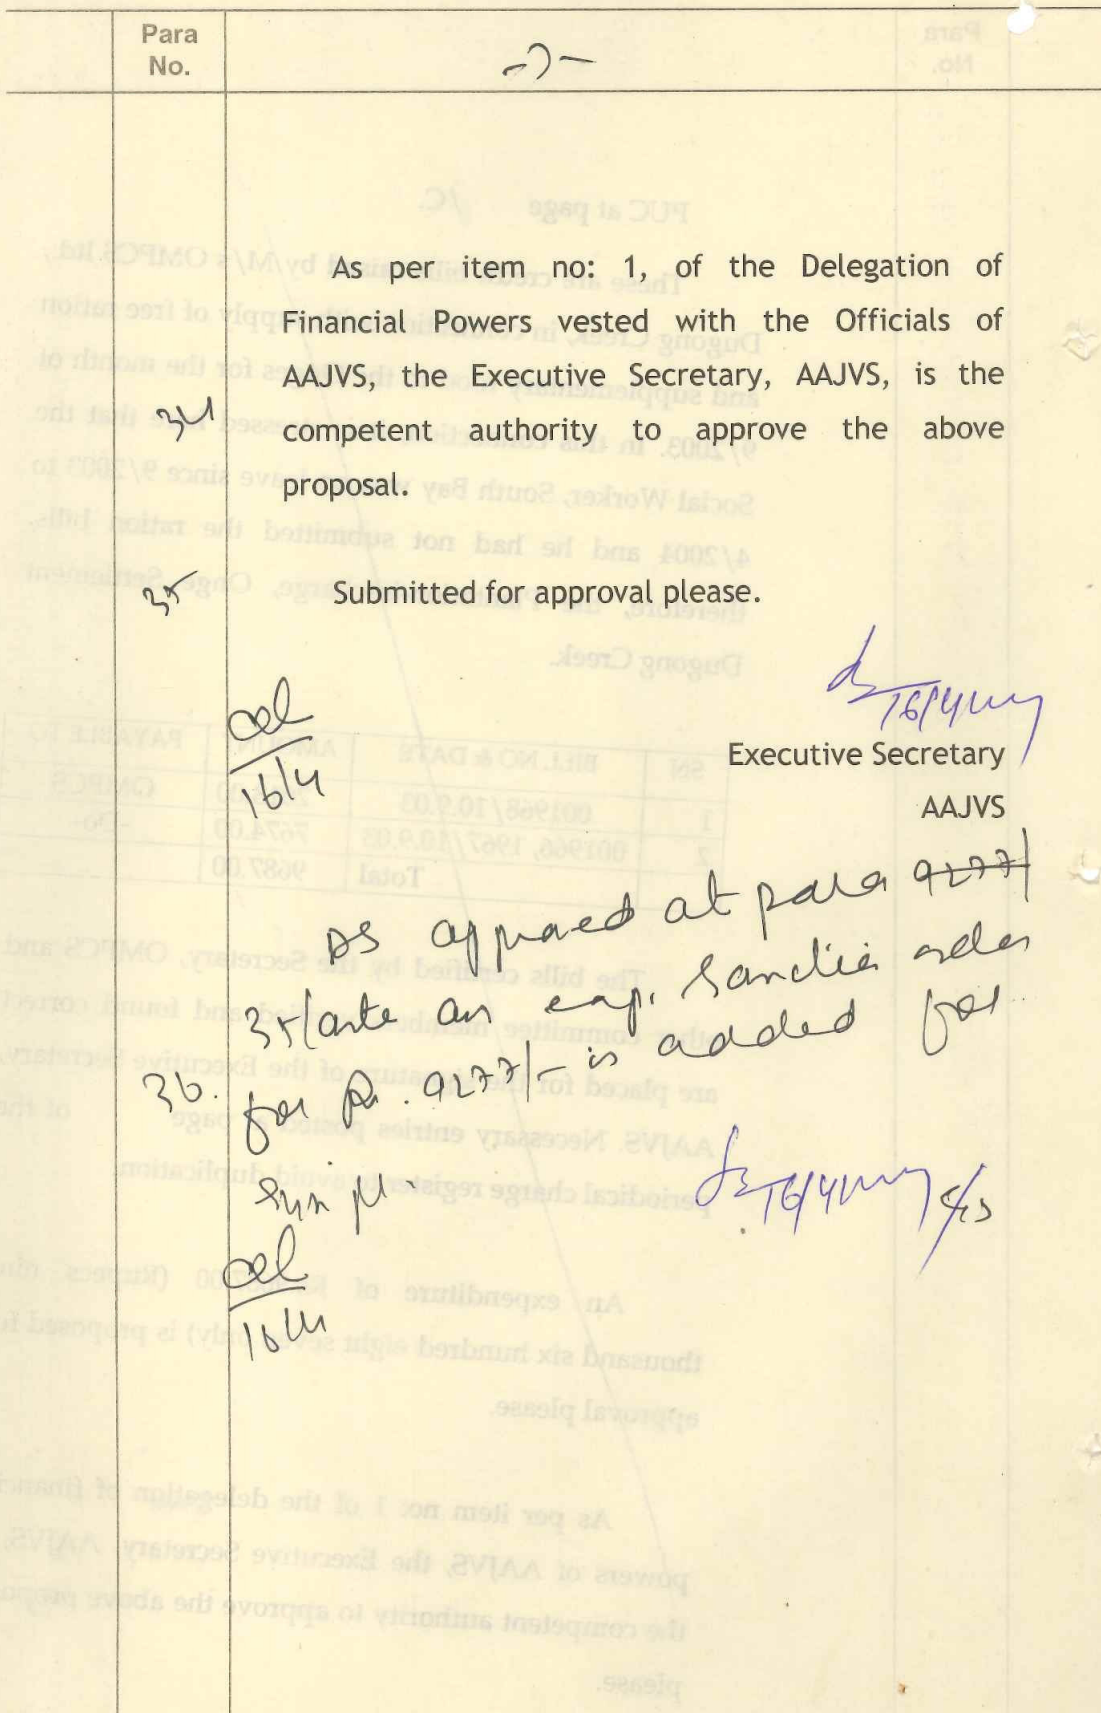 Para
No.
-7-
As per item no: 1, of the Delegation of
Financial Powers vested with the Officials of
AAJVS, the Executive Secretary, AAJVS, is the
34 competent authority to approve the above
proposal.
35 Submitted for approval please.
16/4
16/4
Executive Secretary
AAJVS
As approved at para 9277/
35/ante an exp. Sanction order
36. for Rs. 9277/- is added for
sign pl.
16/4
16/4